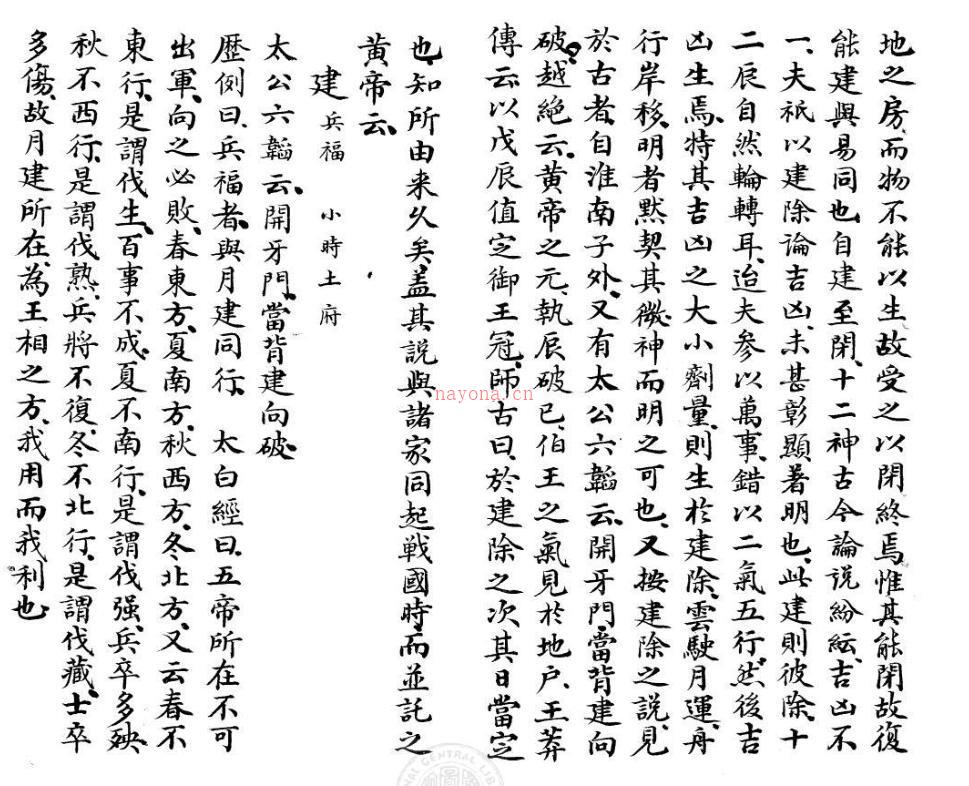 地之房、而物不能以生、故受之以閉終焉、惟其能閉故復
能建與易同也、自建至閉、十二神古今論說紛紜、吉凶不
一、夫祇以建除論吉凶、未甚彰顯著明也、此建則彼除、十
二辰自然輪轉耳、迨夫參以萬事、錯以二氣五行、然後吉
凶生焉、特其吉凶之大小劑量、則生於建除、雲駛月運、舟
行岸移、明者默契其微、神而明之可也、又按建除之說、見
於古者、自淮南子外、又有太公六韜云、開牙門、當背建向
破、越絕云、黃帝之元、執辰破巳、伯王之氣見於地戶、王莽
傳云、以戊辰值定御王冠、師古曰、於建除之次、其日當定
也、知所由来久矣、盖其說與諸家同起戰國時、而並託之
黃帝云、
建 兵福 小時土府
太公六韜云、開牙門、當背建向破、
歷例曰、兵福者、與月建同行、 太白經曰、五帝所在不可
出軍、向之必敗、春東方、夏南方、秋西方、冬北方、又云春不
東行、是謂伐生、百事不成、夏不南行、是謂伐强、兵卒多殃、
秋不西行、是謂伐熟、兵將不復、冬不北行、是謂伐藏、士卒
多傷、故月建所在、為王相之方、我用而我利也、
nayona.cn
CENTRAL LIB